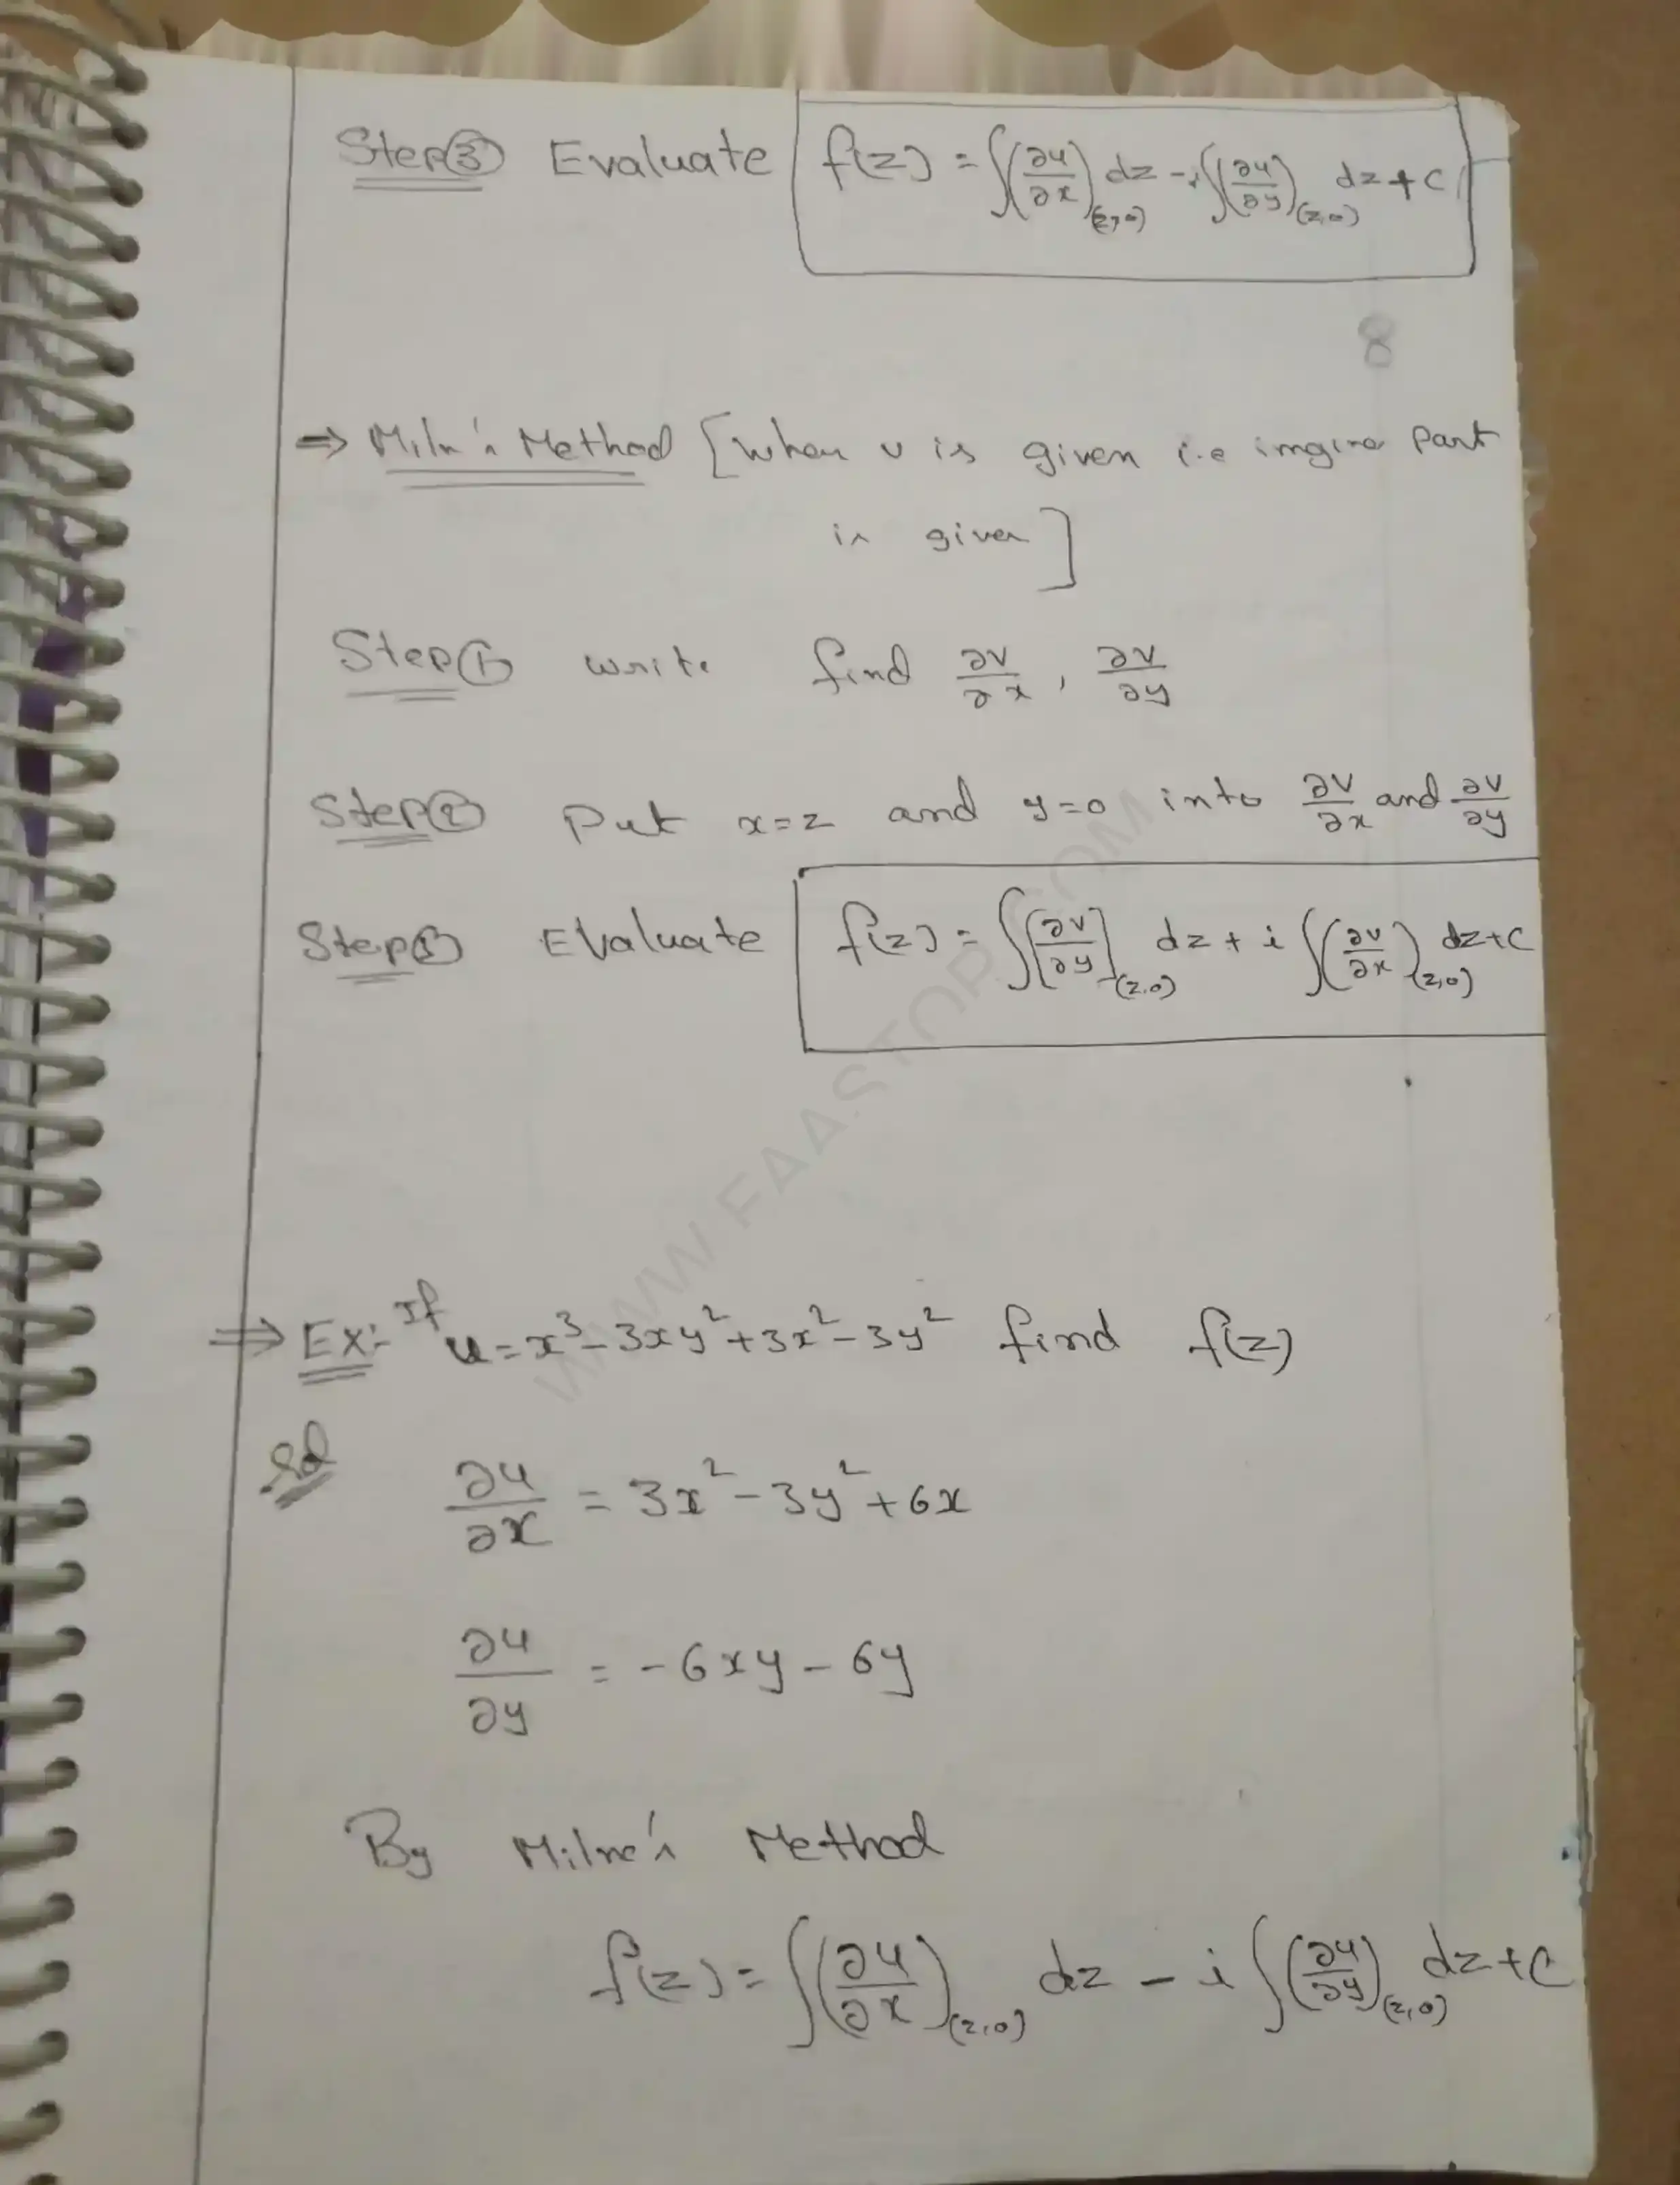 Step③ Evaluate f(z) = ∫(∂u/∂x)(z,0) dz - i∫(∂u/∂y)(z,0) dz + C
8
⇒ Miln's Method [when v is given i.e part
is given]
Step① write find ∂v/∂x, ∂v/∂y
Step② Put x=z and y=0 into ∂v/∂x and ∂v/∂y
Step③ Evaluate f(z) = ∫(∂v/∂y)(z,0) dz + i∫(∂v/∂x)(z,0) dz + C
WWW.FAASTOP.COM
⇒ Ex:- If u = x³ - 3xy² + 3x² - 3y² find f(z)
Sol
∂u/∂x = 3x² - 3y² + 6x
∂u/∂y = -6xy - 6y
By Milne's Method
f(z) = ∫(∂u/∂x)(z,0) dz - i∫(∂u/∂y)(z,0) dz + C